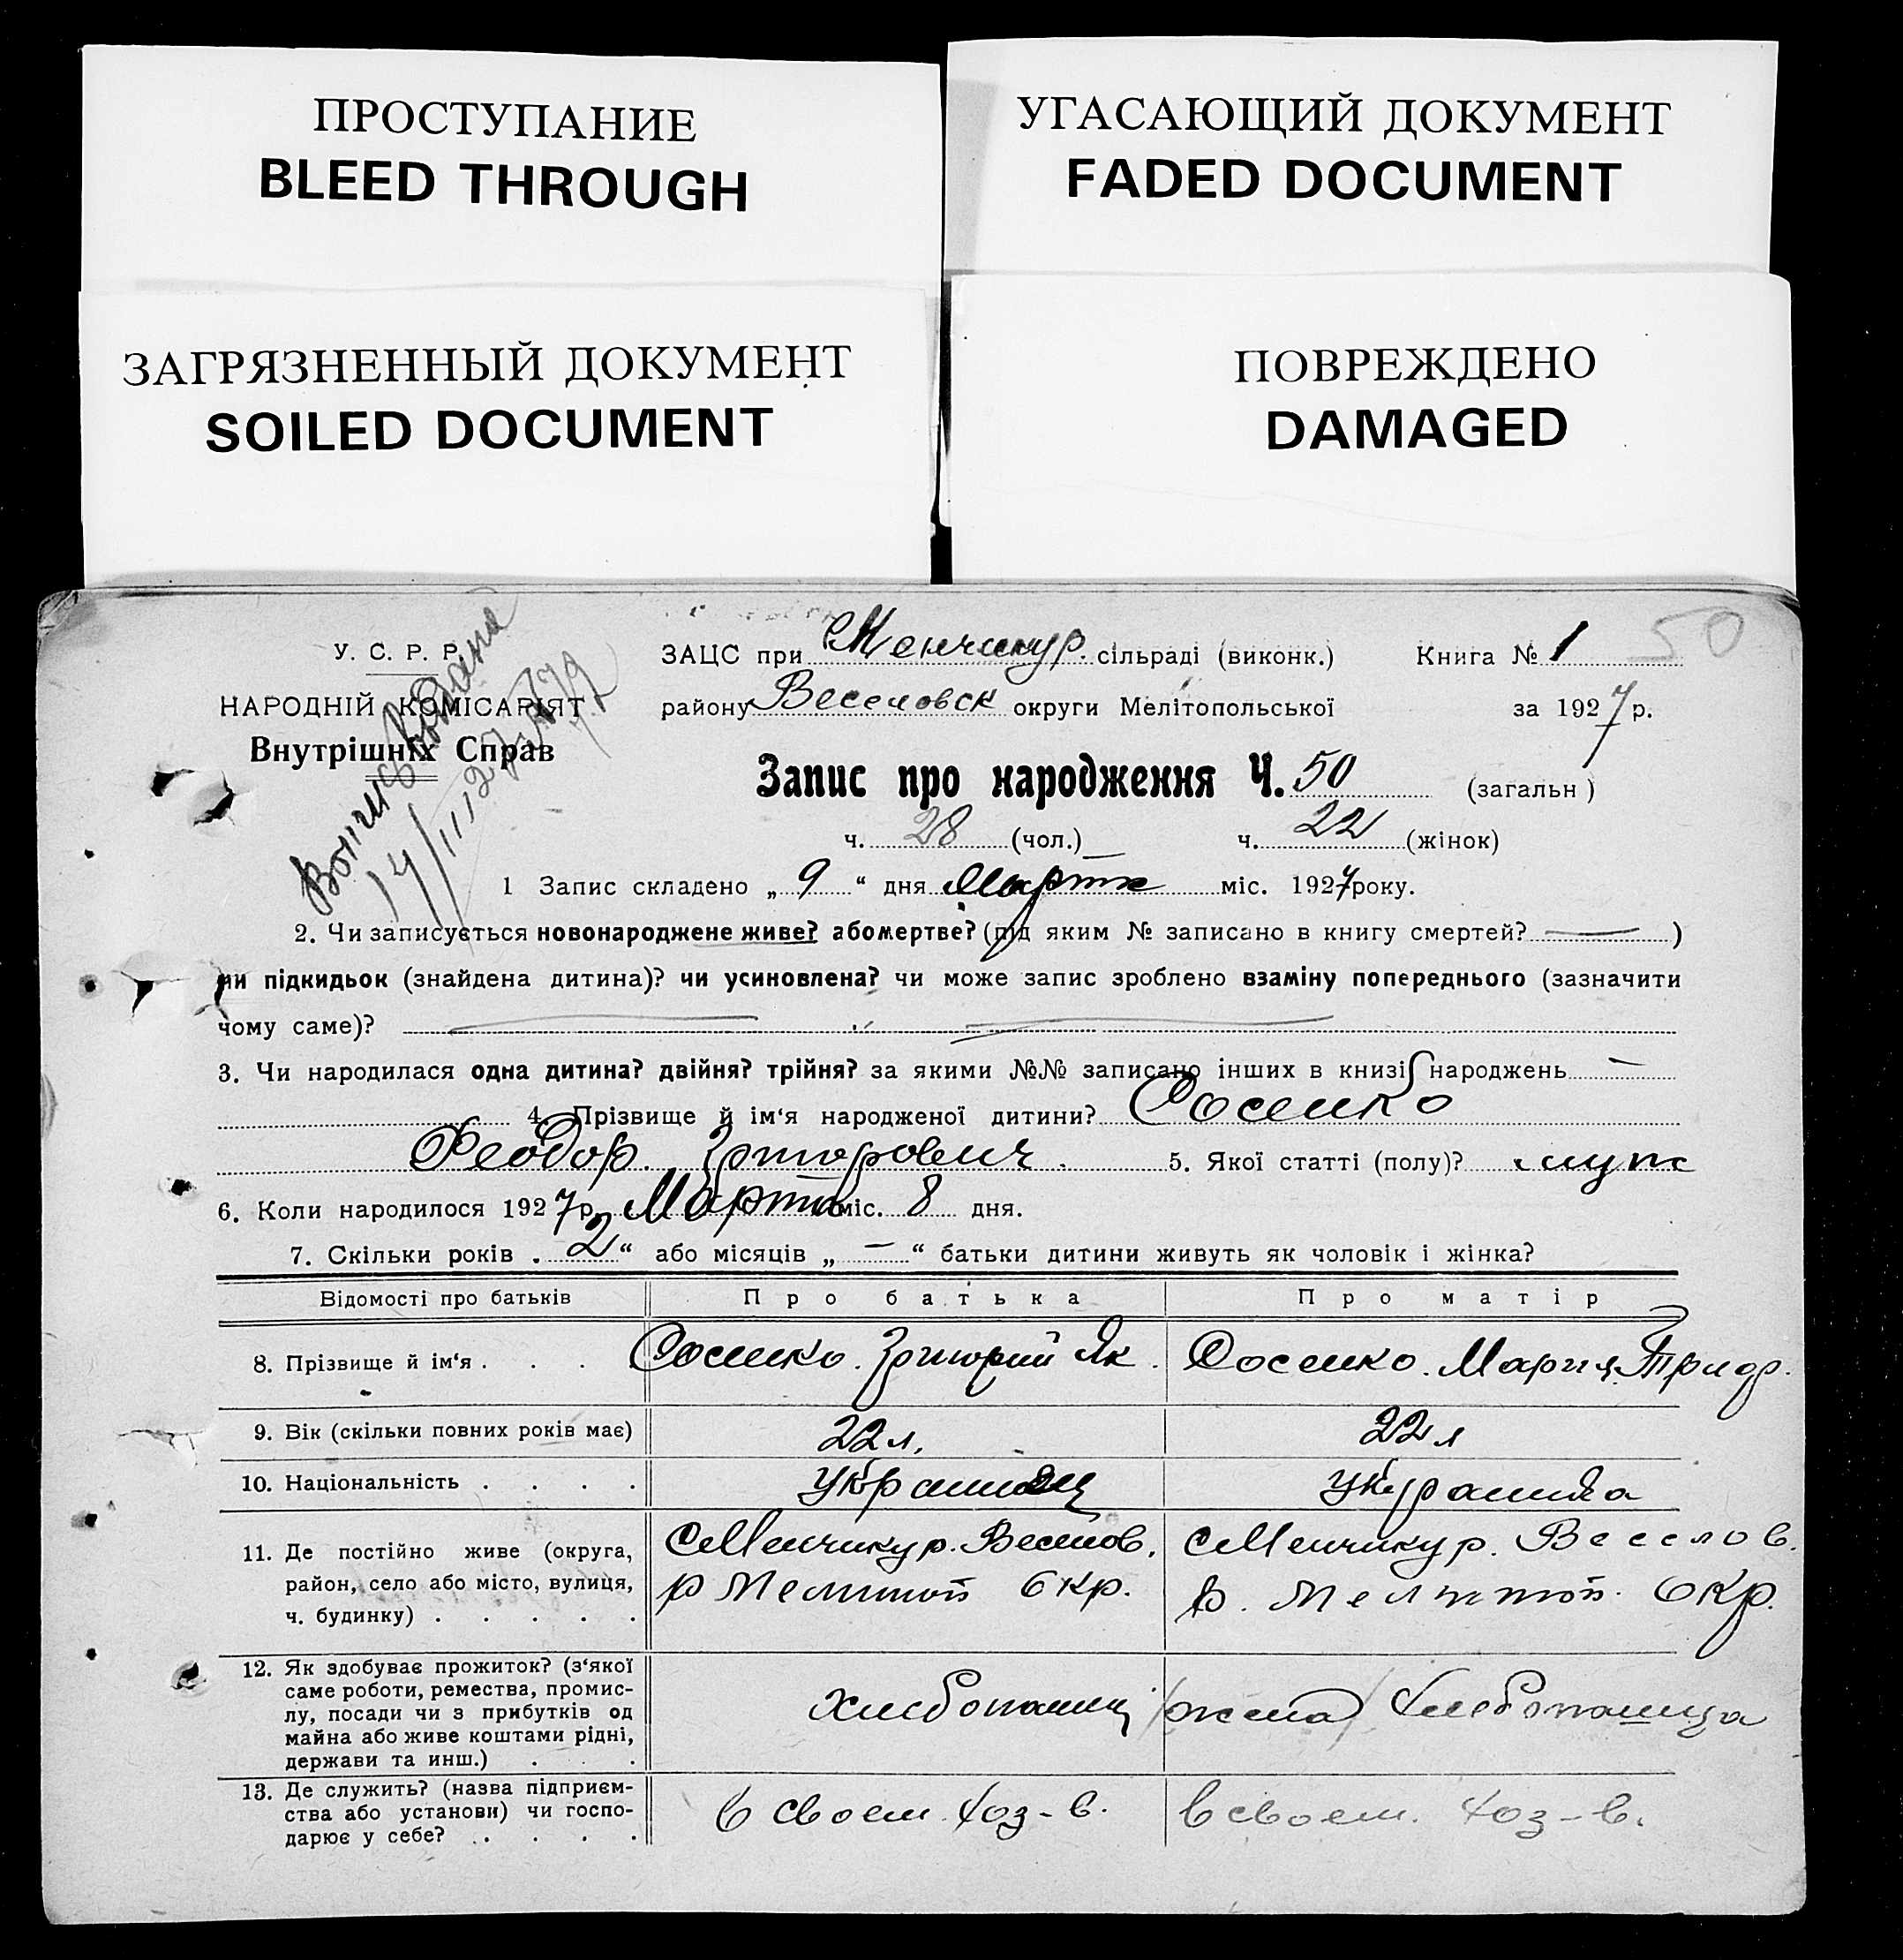 ПРОСТУПАНИЕ
BLEED THROUGH
УГАСАЮЩИЙ ДОКУМЕНТ
FADED DOCUMENT
ЗАГРЯЗНЕННЫЙ ДОКУМЕНТ
SOILED DOCUMENT
ПОВРЕЖДЕНО
DAMAGED
У. С. Р. Р.
НАРОДНІЙ КОМІСАРІЯТ
Внутрішніх Справ
ЗАЦС при Менчикур. сільраді (виконк.) Книга № 1 50
району Веселовск округи Мелітопольської за 1927 р.
Запис про народження Ч. 50 (загальн)
ч. 28 (чол.) ч. 22 (жінок)
1 Запис складено „ 9 “ дня Марта міс. 1927 року.
2. Чи записується новонароджене живе? або мертве? (під яким № записано в книгу смертей? — )
чи підкидьок (знайдена дитина)? чи усиновлена? чи може запис зроблено взаміну попереднього (зазначити
чому саме)?
3. Чи народилася одна дитина? двійня? трійня? за якими №№ записано інших в книзі народжень —
4. Прізвище й ім‘я народженої дитини? Сосенко
Феодор. Григорович. 5. Якої статті (полу)? муж
6. Коли народилося 1927 р. Марта міс. 8 дня.
7. Скільки років „ 2 “ або місяців „ — “ батьки дитини живуть як чоловік і жінка?
Відомості про батьків Про батька Про матір
8. Прізвище й ім‘я . . . . Сосенко. Григорий Як. Сосенко. Мария
9. Вік (скільки повних років має) 22 л. 22 л
10. Національність . . . . Українец Українка
11. Де постійно живе (округа,
район, село або місто, вулиця,
ч. будинку) . . . . .
с Менчикур. Веселов.
р Мелитоп Окр.
с Менчикур. Веселов.
р. Мелитоп. Окр.
12. Як здобуває прожиток? (з‘якої
саме роботи, ремества, промис-
лу, посади чи з прибутків од
майна або живе коштами рідні,
держави та инш.) . . .
хлебопашец
/жена/ хлебопашца
13. Де служить? (назва підприєм-
ства або установи) чи госпо-
дарює у себе? . . . .
в своем хоз-в.
в своем. хоз-в.